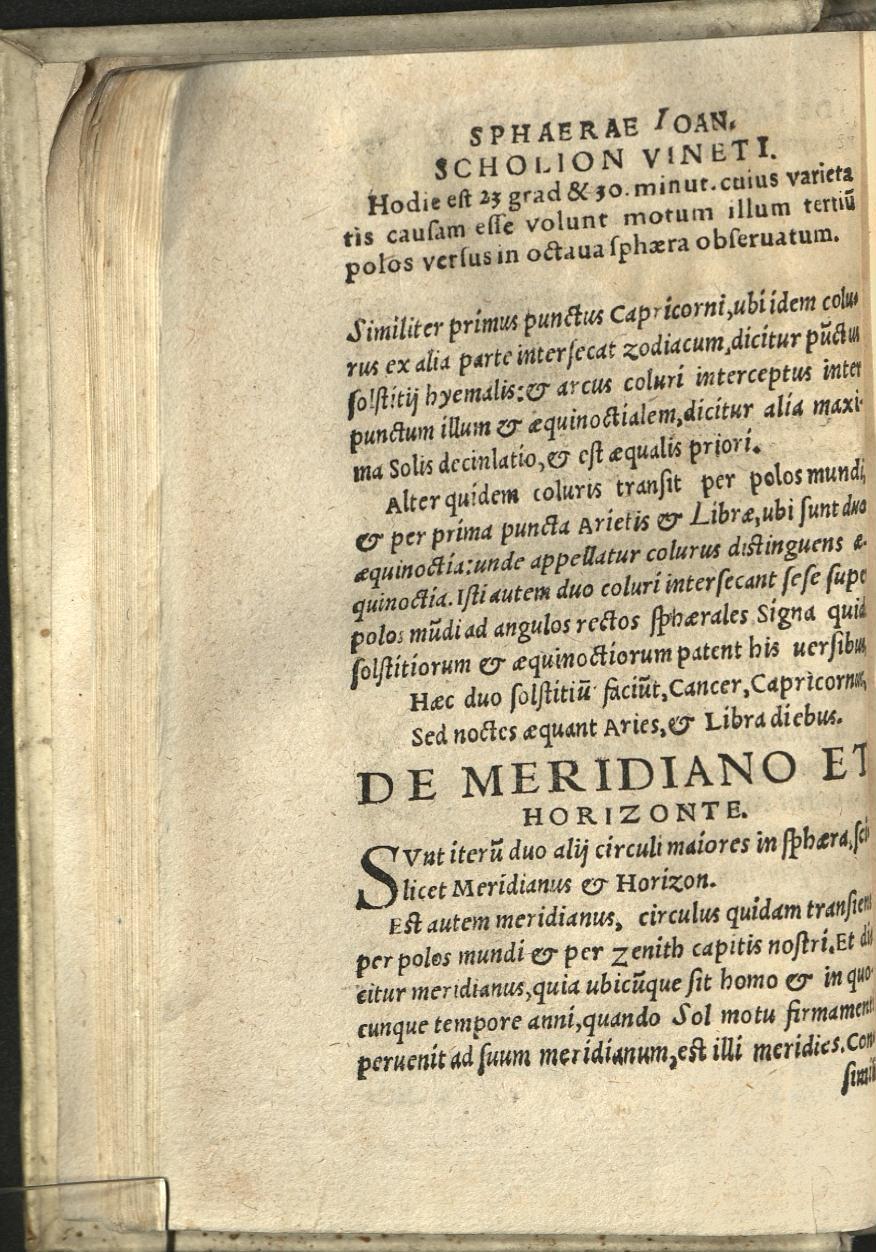 SPHAERAE IOAN.
SCHOLION VINETI.
Hodie est 23 grad & 30. minut. cuius varieta
tis causam esse volunt motum illum tertiũ
polos versus in octaua sphæra obseruatum.
Similiter primus punctus Capricorni, ubi idem colu
rus ex alia parte intersecat zodiacum, dicitur pũctus
solstitij hyemalis: & arcus coluri interceptus inter
punctum illum & æquinoctialem, dicitur alia maxi-
ma Solis decinlatio, & est æqualis priori.
Alter quidem coluris transit per polos mundi,
& per prima puncta Arietis & Libræ, ubi sunt duo
æquinoctia: unde appellatur colurus distinguens æ-
quinoctia. Isti autem duo coluri intersecant sese supe
polos mũdi ad angulos rectos sphærales Signa quid
solstitiorum & æquinoctiorum patent his uersibus
Hæc duo solstitiũ faciũt, Cancer, Capricornus,
Sed noctes æquant Aries, & Libra diebus.
DE MERIDIANO ET
HORIZONTE.
SVnt iterũ duo alij circuli maiores in sphæra, sci
licet Meridianus & Horizon.
Est autem meridianus, circulus quidam transiens
per polos mundi & per zenith capitis nostri. Et di
citur meridianus, quia ubicũque sit homo & in quo-
cunque tempore anni, quando Sol motu firmament
peruenit ad suum meridianum, est illi meridies. Con
simil